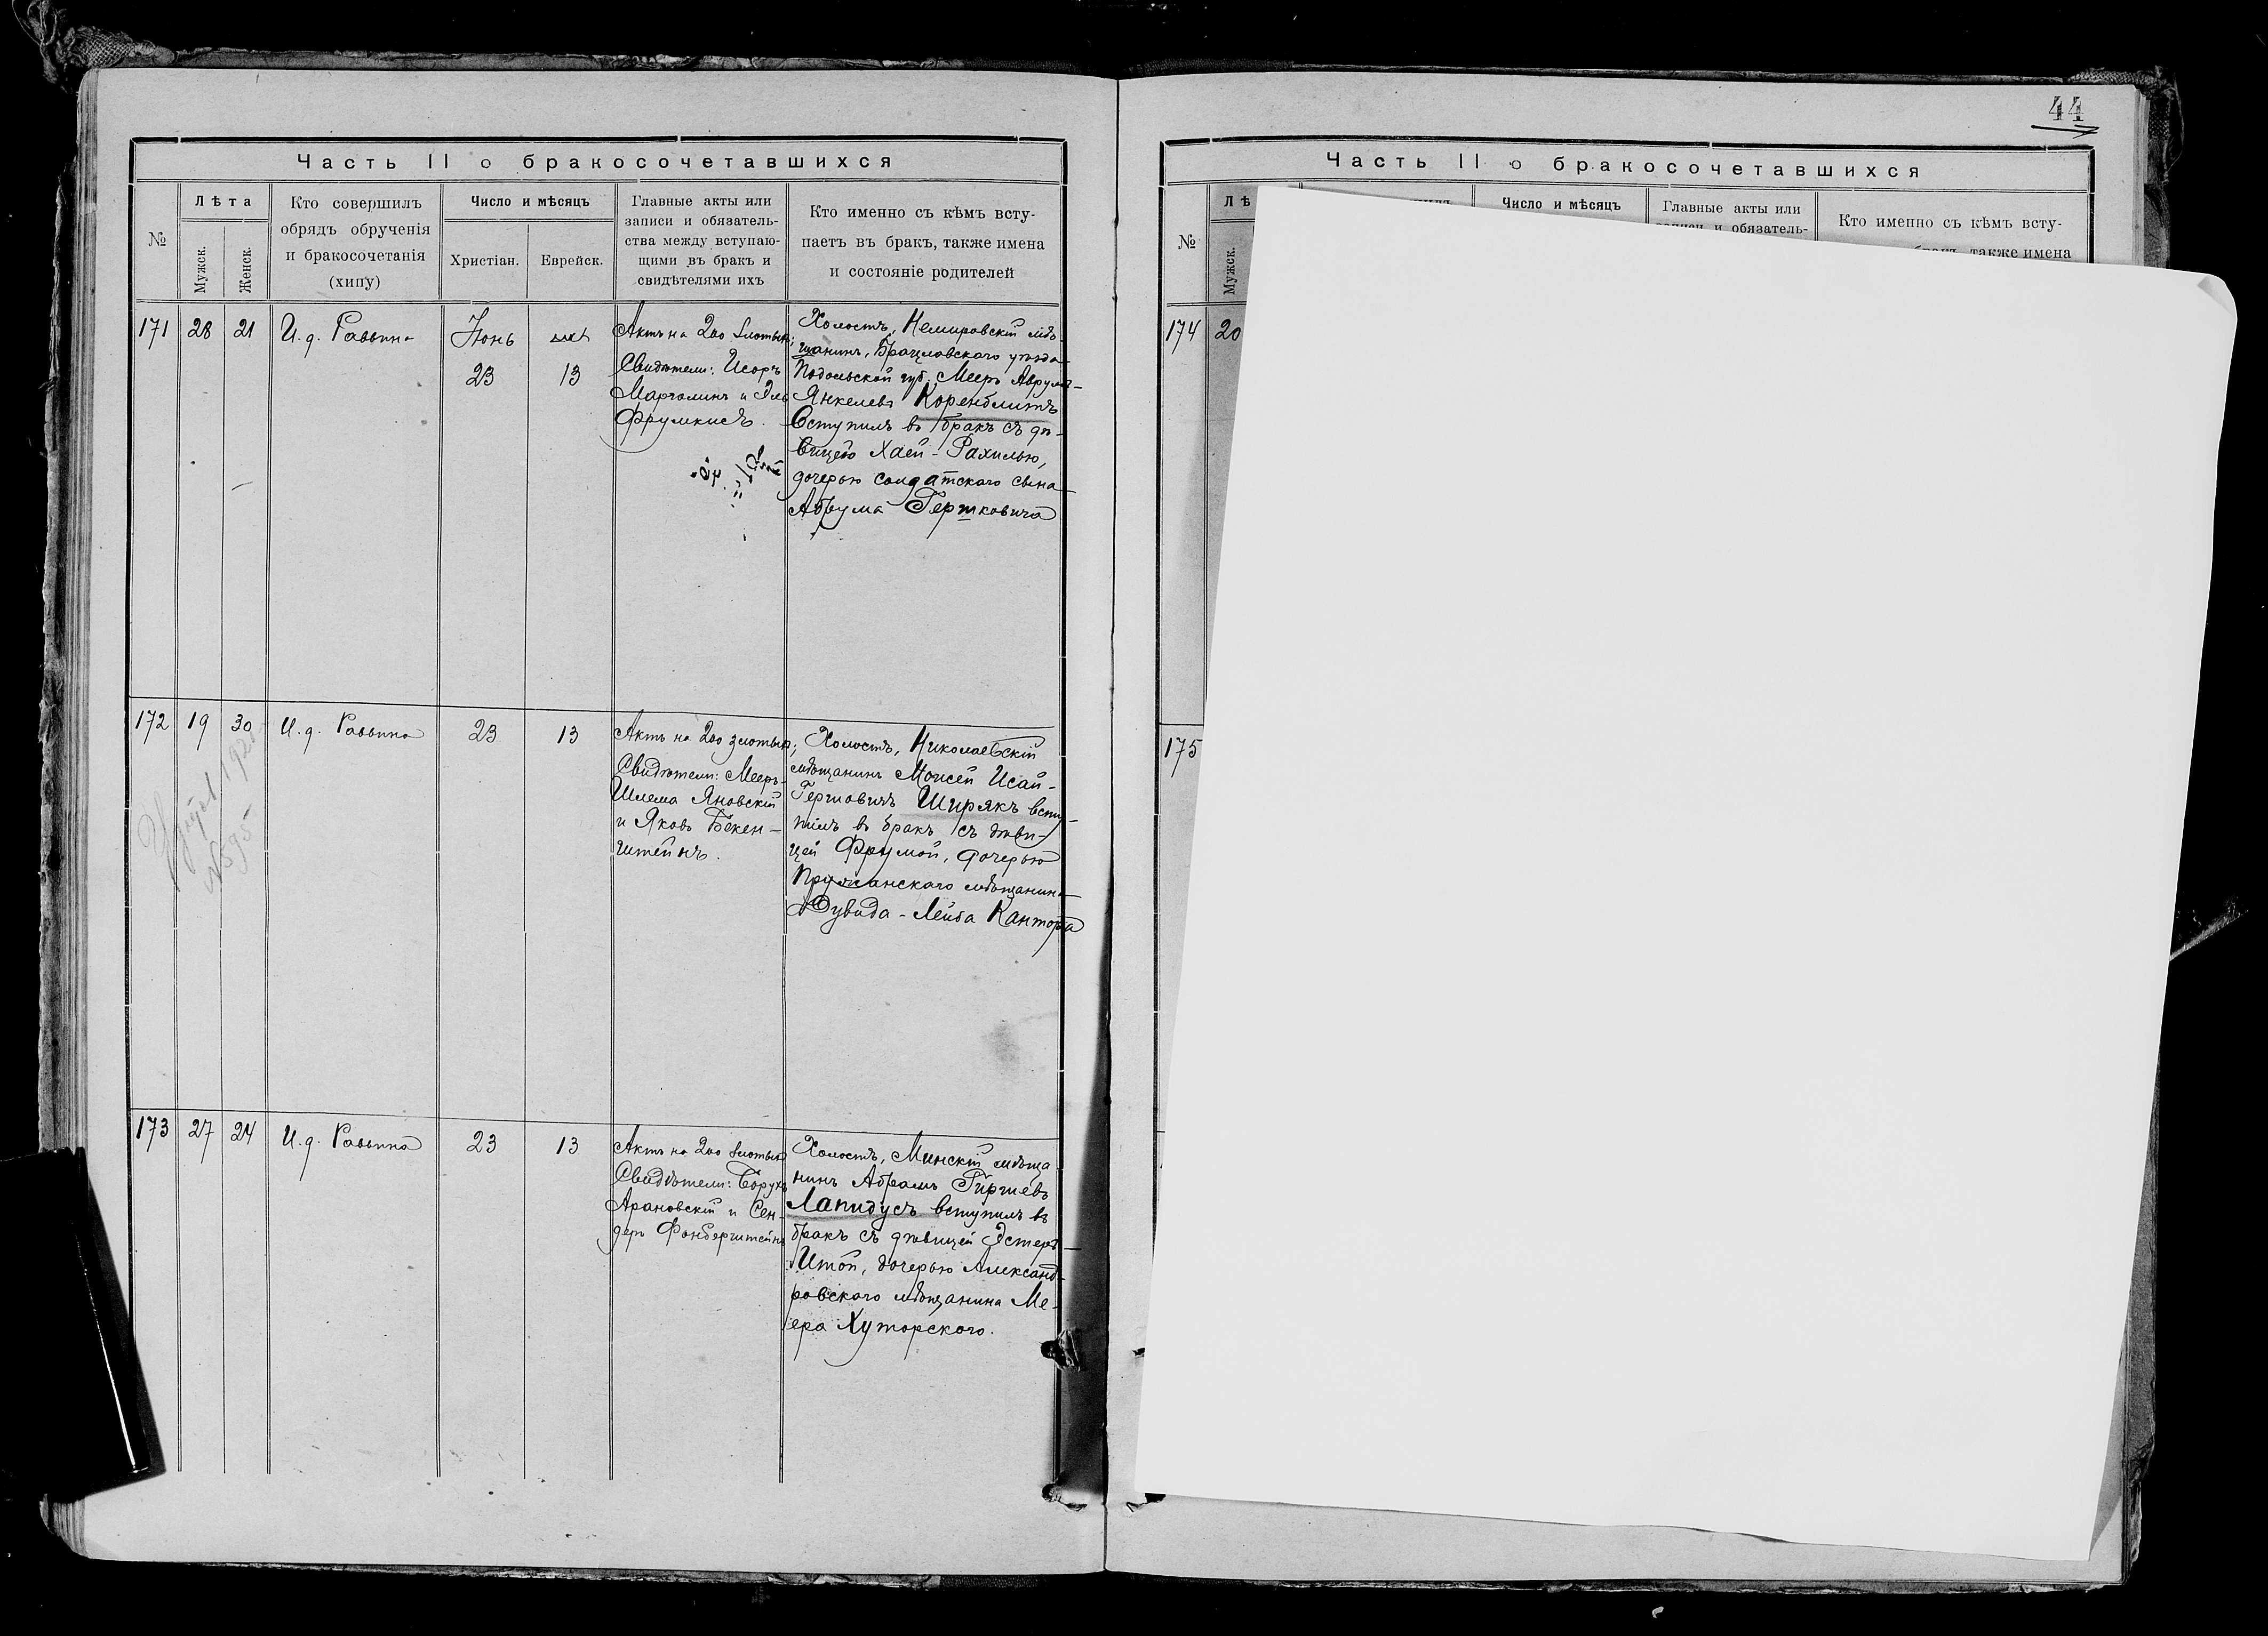 Часть II о бракосочетавшихся
№
Лѣта
Мужск.
Женск.
Кто совершилъ
обрядъ обрученія
и бракосочетанія
(хипу)
Число и мѣсяцъ
Христіан.
Еврейск.
Главные акты или
записи и обязатель-
ства между вступаю-
щими въ бракъ и
свидѣтелями ихъ
Кто именно съ кѣмъ всту-
паетъ въ бракъ, также имена
и состояніе родителей
171
28
21
И. д. Раввина
Іюнь
23
13
Актъ на 200 злотых;
Свидѣтели: Исоръ
Марголинъ и Эле
Фрумкисъ.
Холостъ, Немировскій мѣ-
щанинъ, Брацлавскаго уѣзда
Подольской губ. Мееръ Аврумъ-
Янкелевъ Коренблитъ
Вступилъ въ бракъ съ дѣ-
вицею Хаей-Рахилью,
дочерью солдатскаго сына
Абрума Гершковича
172
19
30
И. д. Раввина
23
13
Актъ на 200 злотых;
Свидѣтели: Мееръ-
Шлема Яновскій
и Яковъ Бекен-
штейнъ.
Холостъ, Николаевскій
мѣщанинъ Моисей Исай-
Гершовичъ Ширякъ всту-
пилъ въ бракъ съ дѣви-
цей Фрумой, дочерью
Пружанскаго мѣщанина
Дувида-Лейба Кантора
173
27
24
И. д. Раввина
23
13
Актъ на 200 злотых
Свидѣтели: Борухъ
Арановскій и Сен-
деръ Фонберштейнъ
Холостъ, Минскій мѣща-
нинъ Абрамъ Гиршевъ
Лапидусъ вступилъ въ
бракъ съ дѣвицей Эстеръ-
Итой, дочерью Александ-
ровскаго мѣщанина Ме-
ера Хуторского.
44
Часть II о бракосочетавшихся
№
Лѣ
Мужск.
Число и мѣсяцъ
Главные акты или
и обязатель-
Кто именно съ кѣмъ всту-
также имена
174
20
175